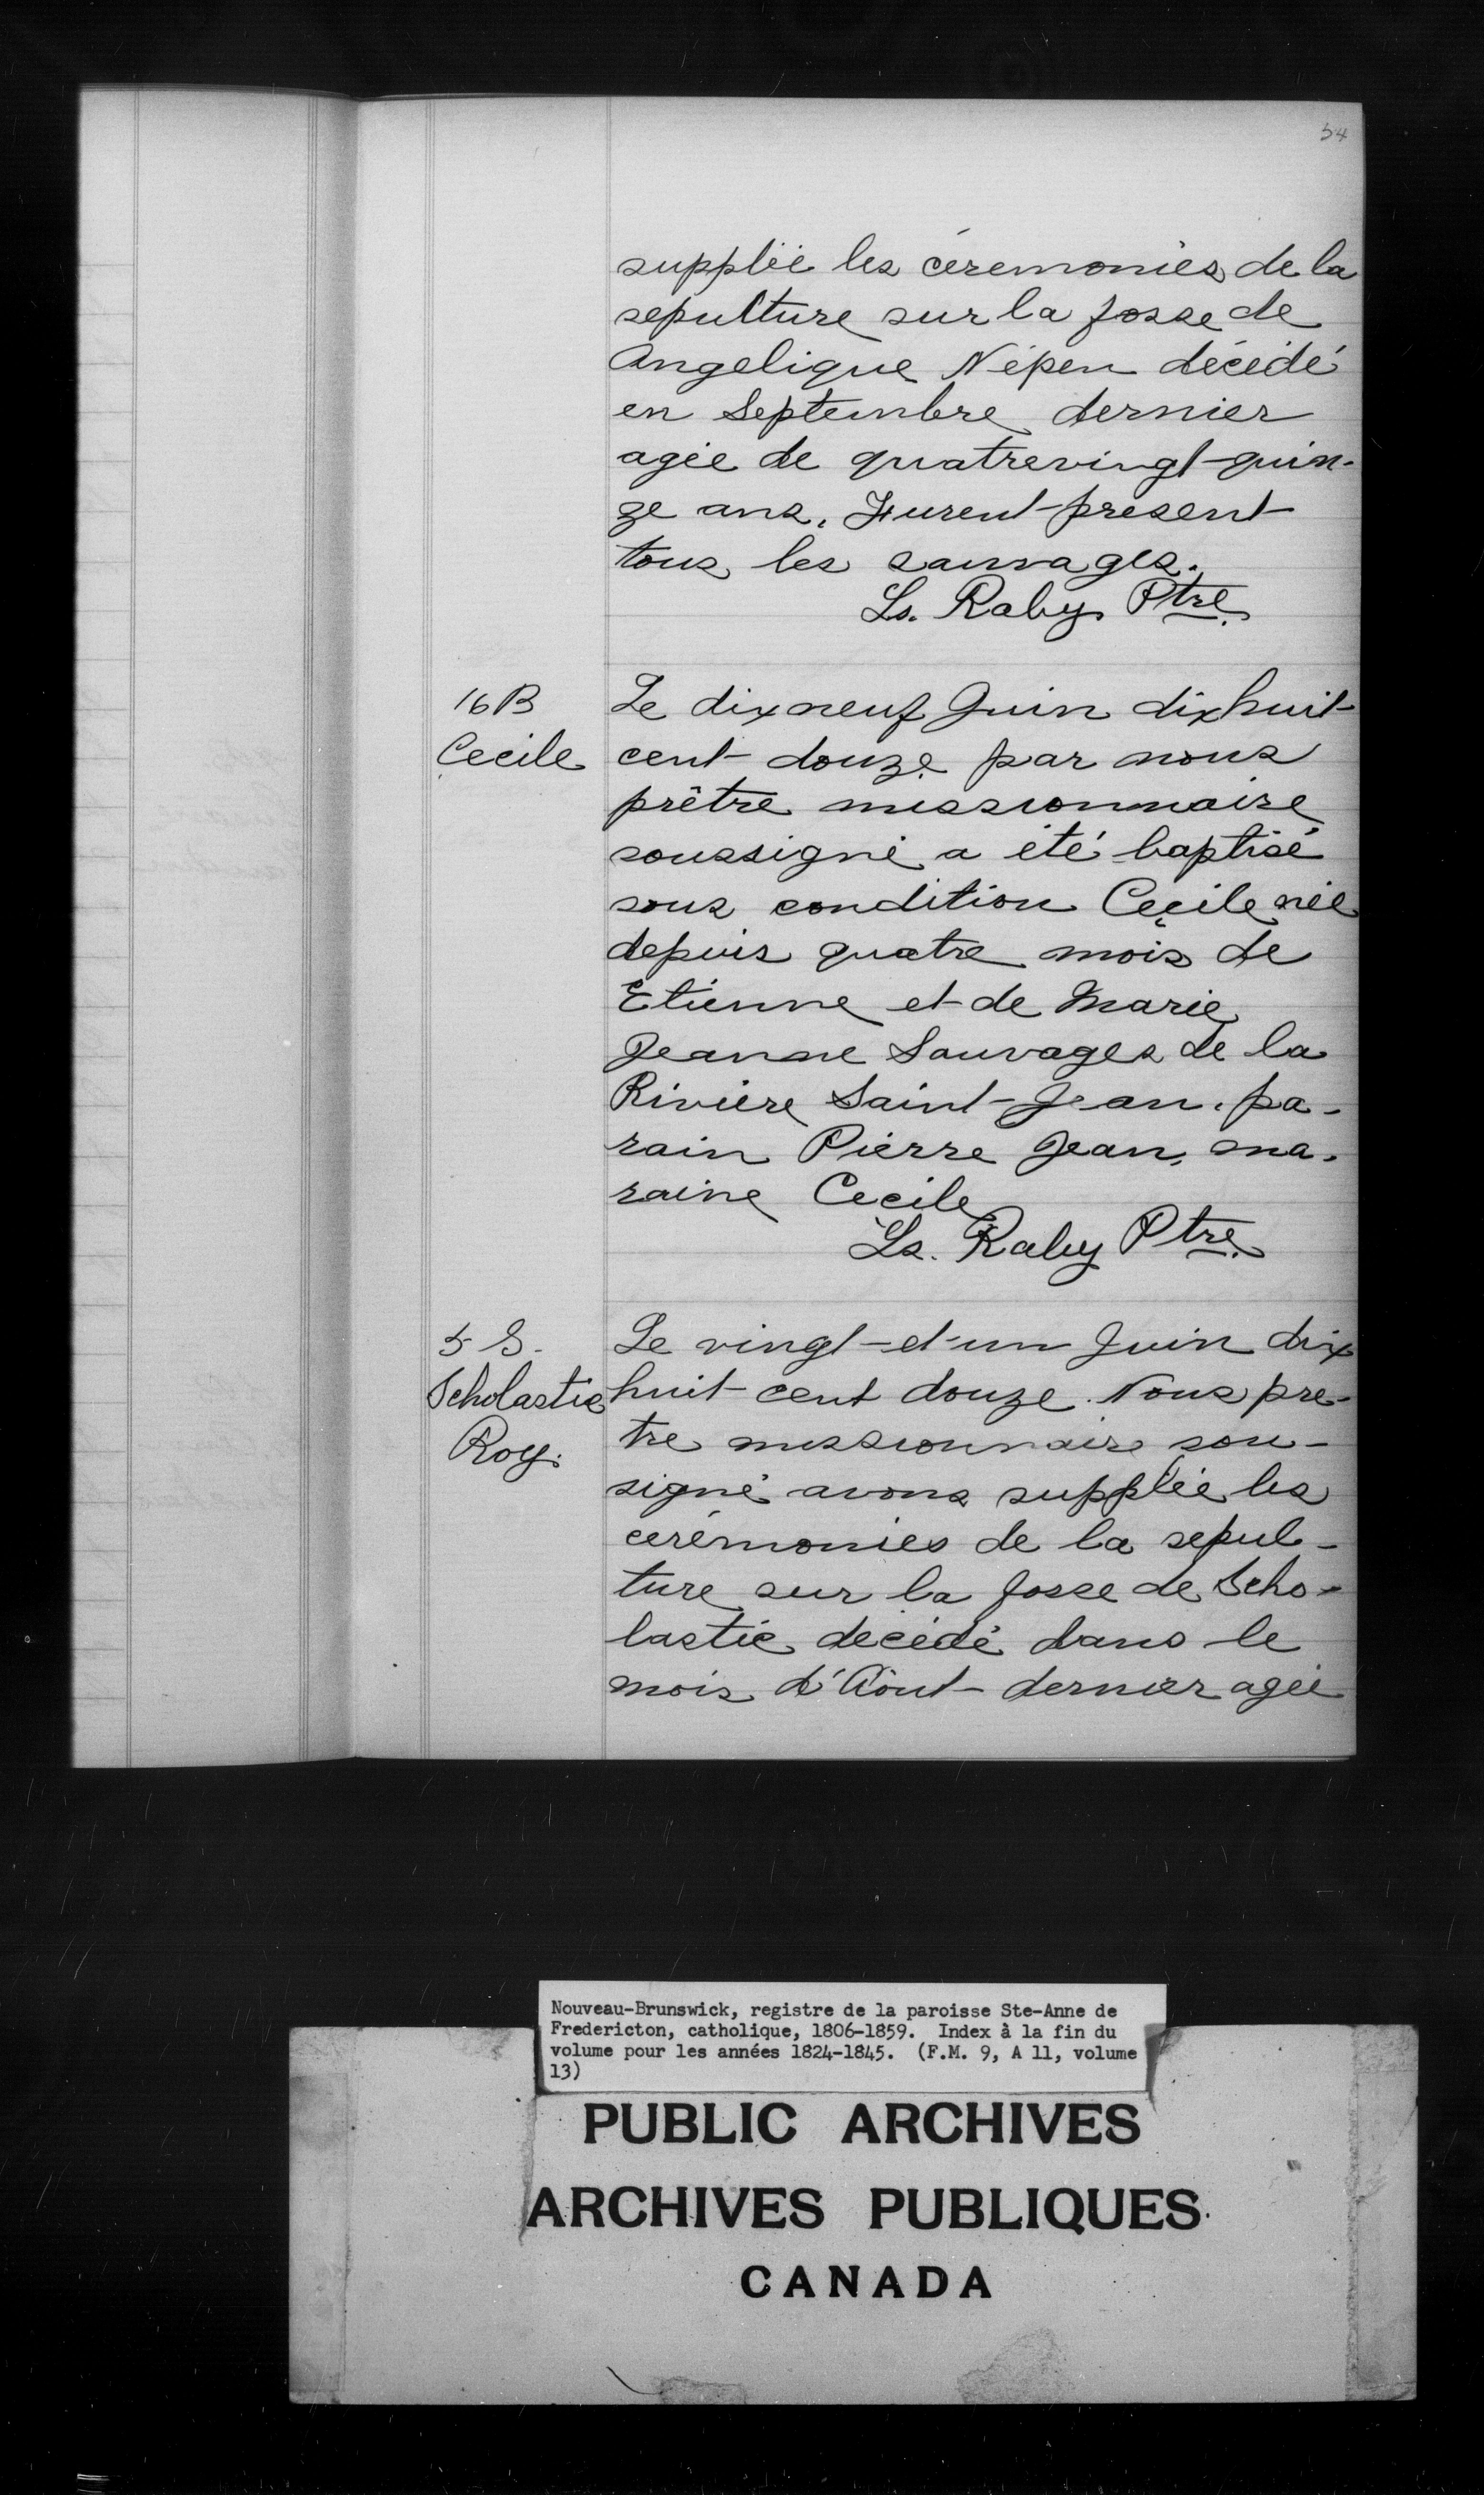 54
suppléé les céremonies de la
sepulture sur la fosse de
Angelique Népen décédé
en Septembre dernier
agée de quatrevingt-quin-
ze ans. Furent present
tous les sauvages.
Ls. Raby Ptre
16 B
Cecile
Le dix neuf Juin dix huit
cent douze par nous
prêtre missionnaire
soussigné a été baptisé
sous condition Cecile née
depuis quatre mois de
Etienne et de Marie
Jeanne Sauvages de la
Riviere Saint-Jean. pa-
rain Pierre Jean, ma-
raine Cecile
Ls. Raby Ptre
5 S.
Scholastic
Roy.
Le vingt-et-un Juin dix
huit cent douze. Nous pre-
tre missionnaire sou-
signé avons suppléé les
cerémonies de la sepul-
ture sur la fosse de Scho-
lastic decédé dans le
mois d'Août dernier agée
Nouveau-Brunswick, registre de la paroisse Ste-Anne de
Fredericton, catholique, 1806-1859. Index à la fin du
volume pour les années 1824-1845. (F.M. 9, A 11, volume
13)
PUBLIC ARCHIVES
ARCHIVES PUBLIQUES
CANADA